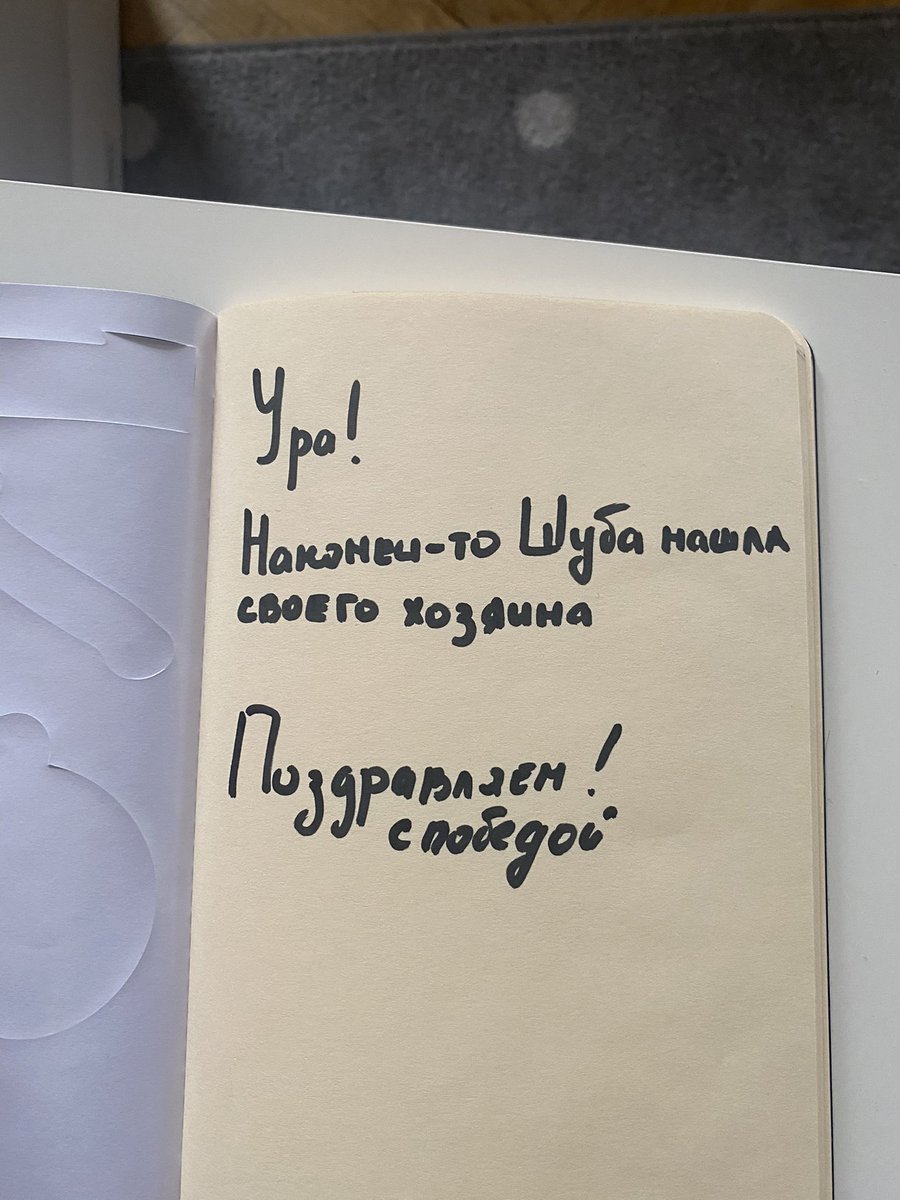 Ура!
Наконец-то Шуба нашла
своего хозяина
Поздравляем!
с победой